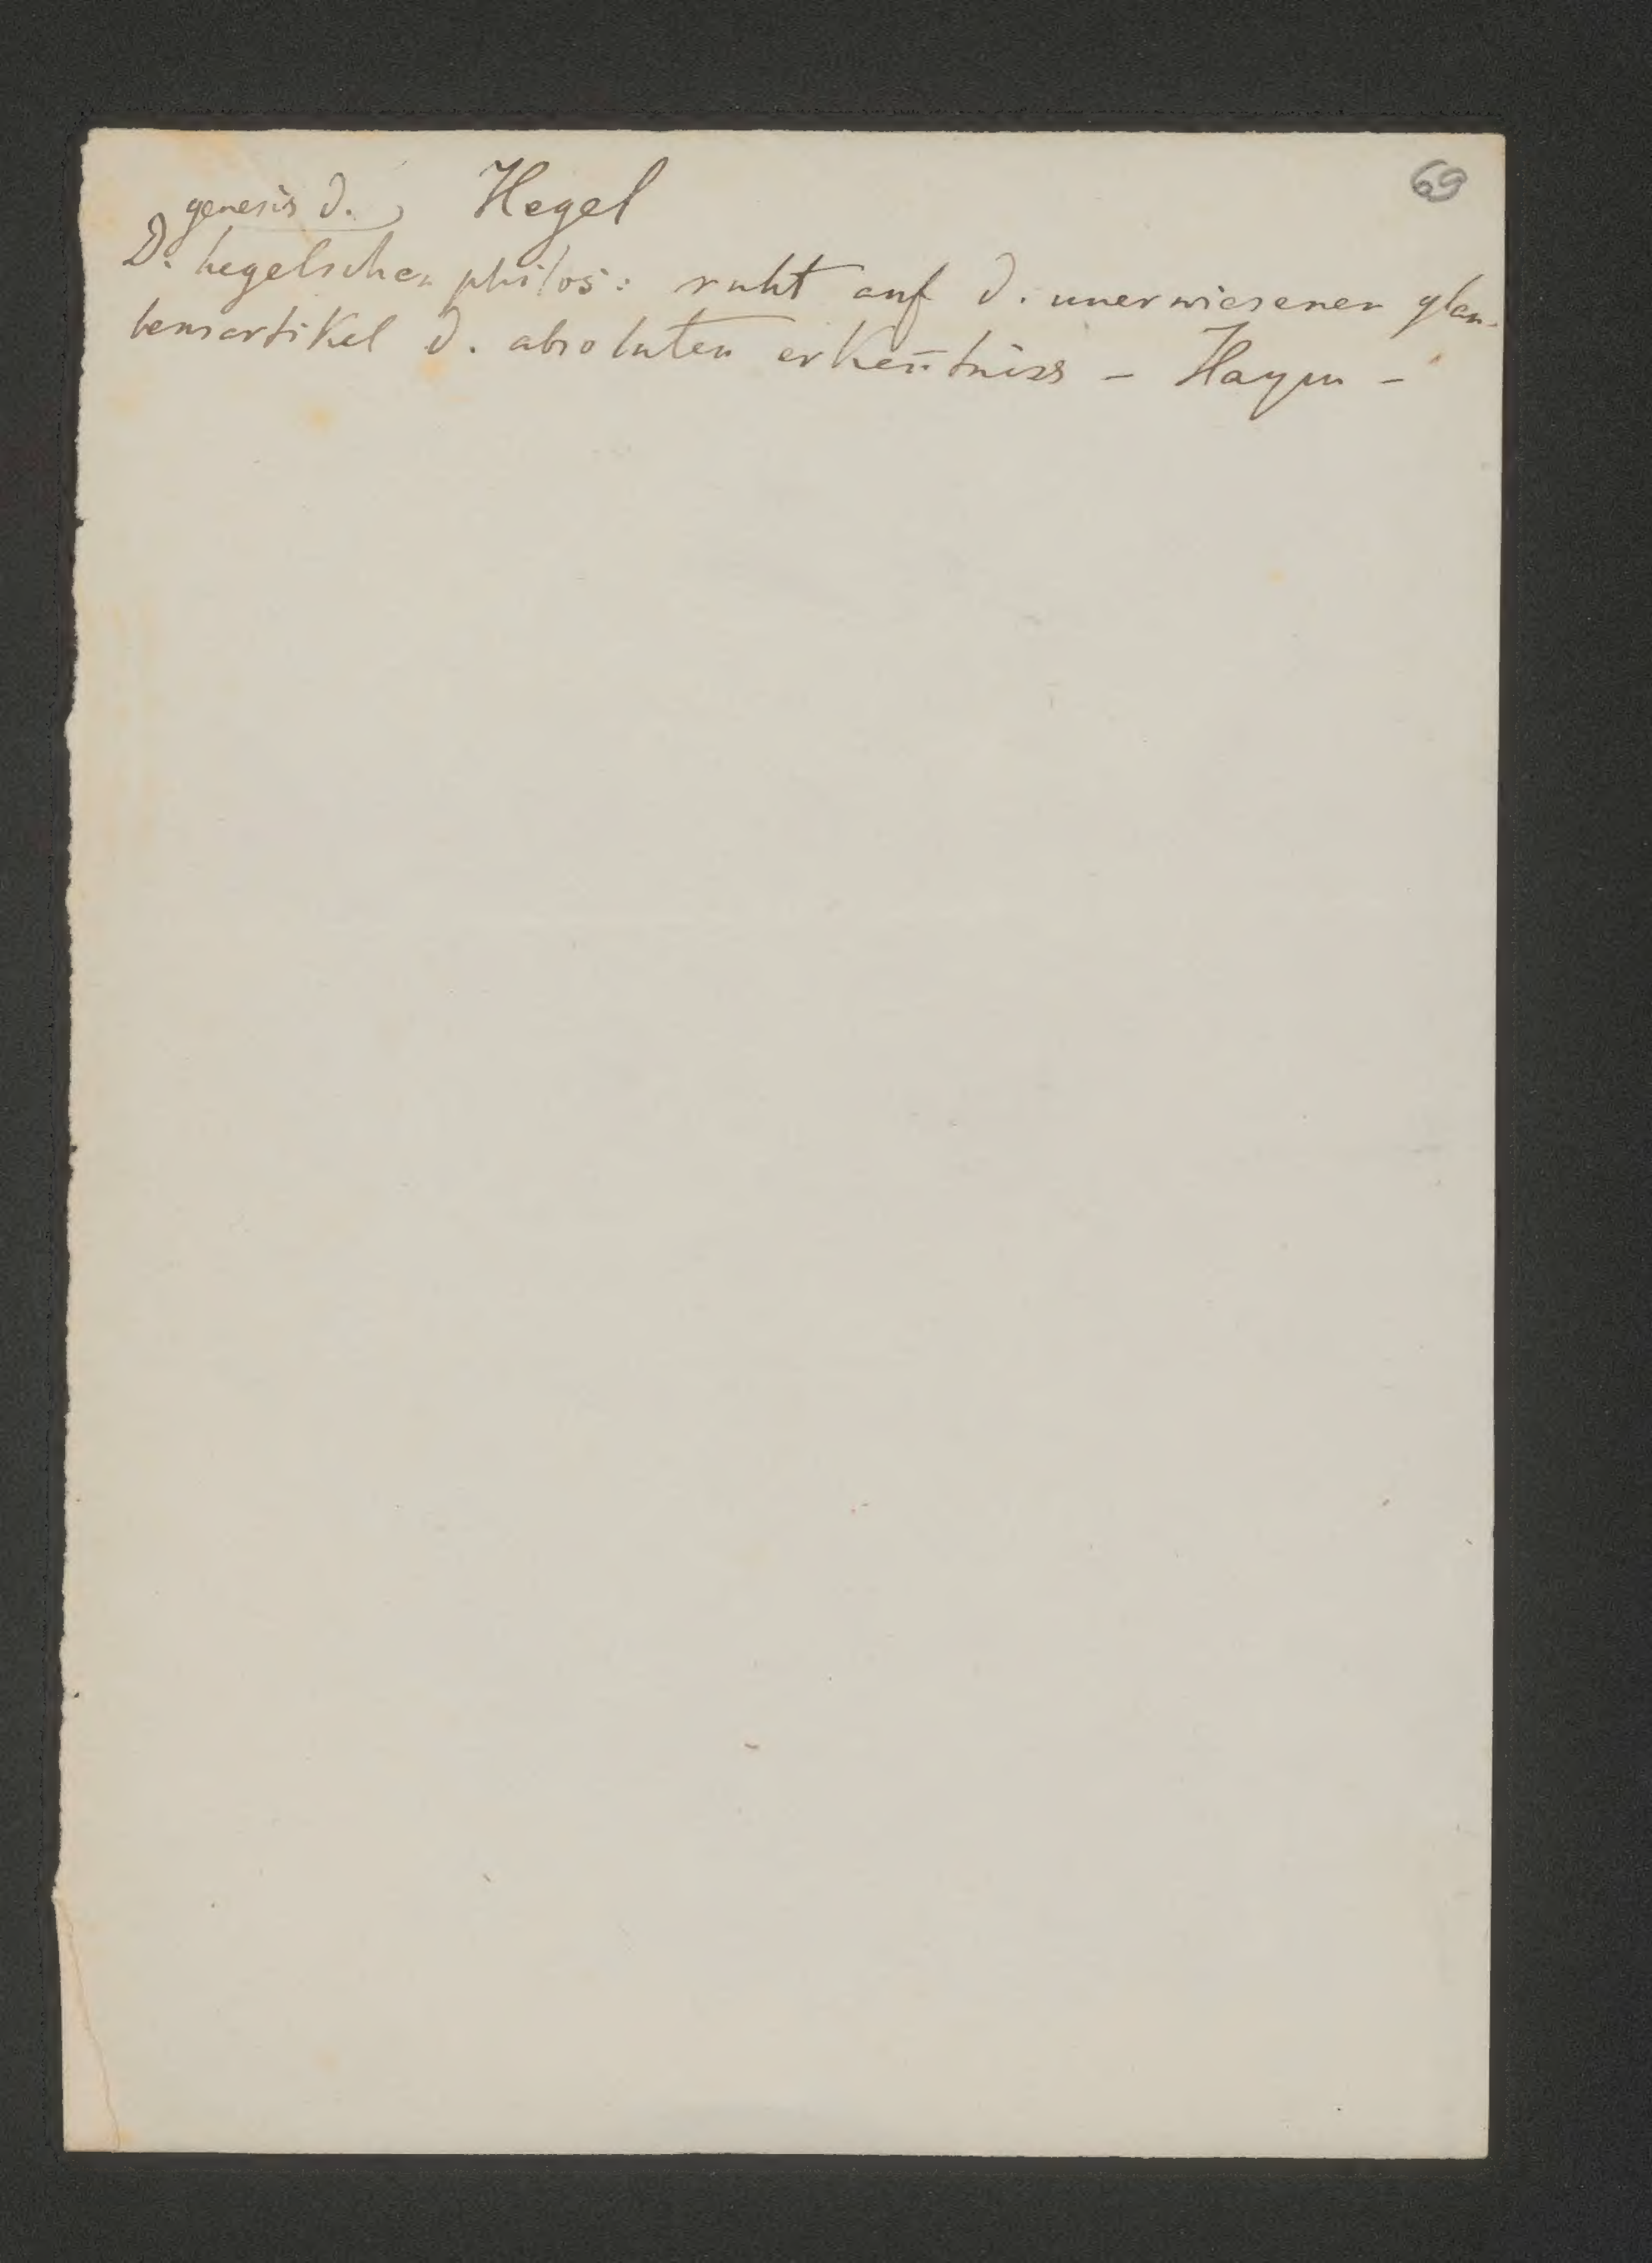 69
Hegel
genesis d.
D. hegelschen philos: ruht auf d. unerwiesenen glau-
bensartikel d. absoluten erken̄tniss – Haym –